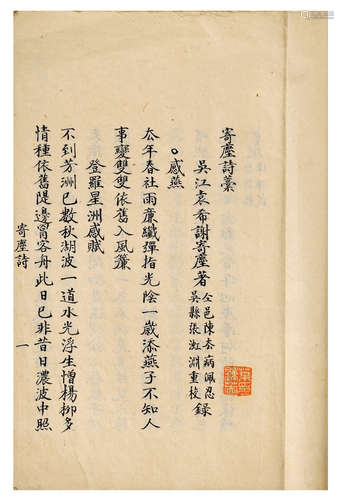 寄塵詩藁
吳江袁希謝寄塵著
仝邑陳去病佩忍錄
吳縣張㳌淵重校
感燕
去年春社雨廉纖彈指光陰一歲添燕子不知人
事變雙雙依舊入風簾
登羅星洲感賦
不到芳洲已數秋湖波一道水光浮生憎楊柳多
情種依舊隄邊罥客舟此日已非昔日濃波中照
寄塵詩
一